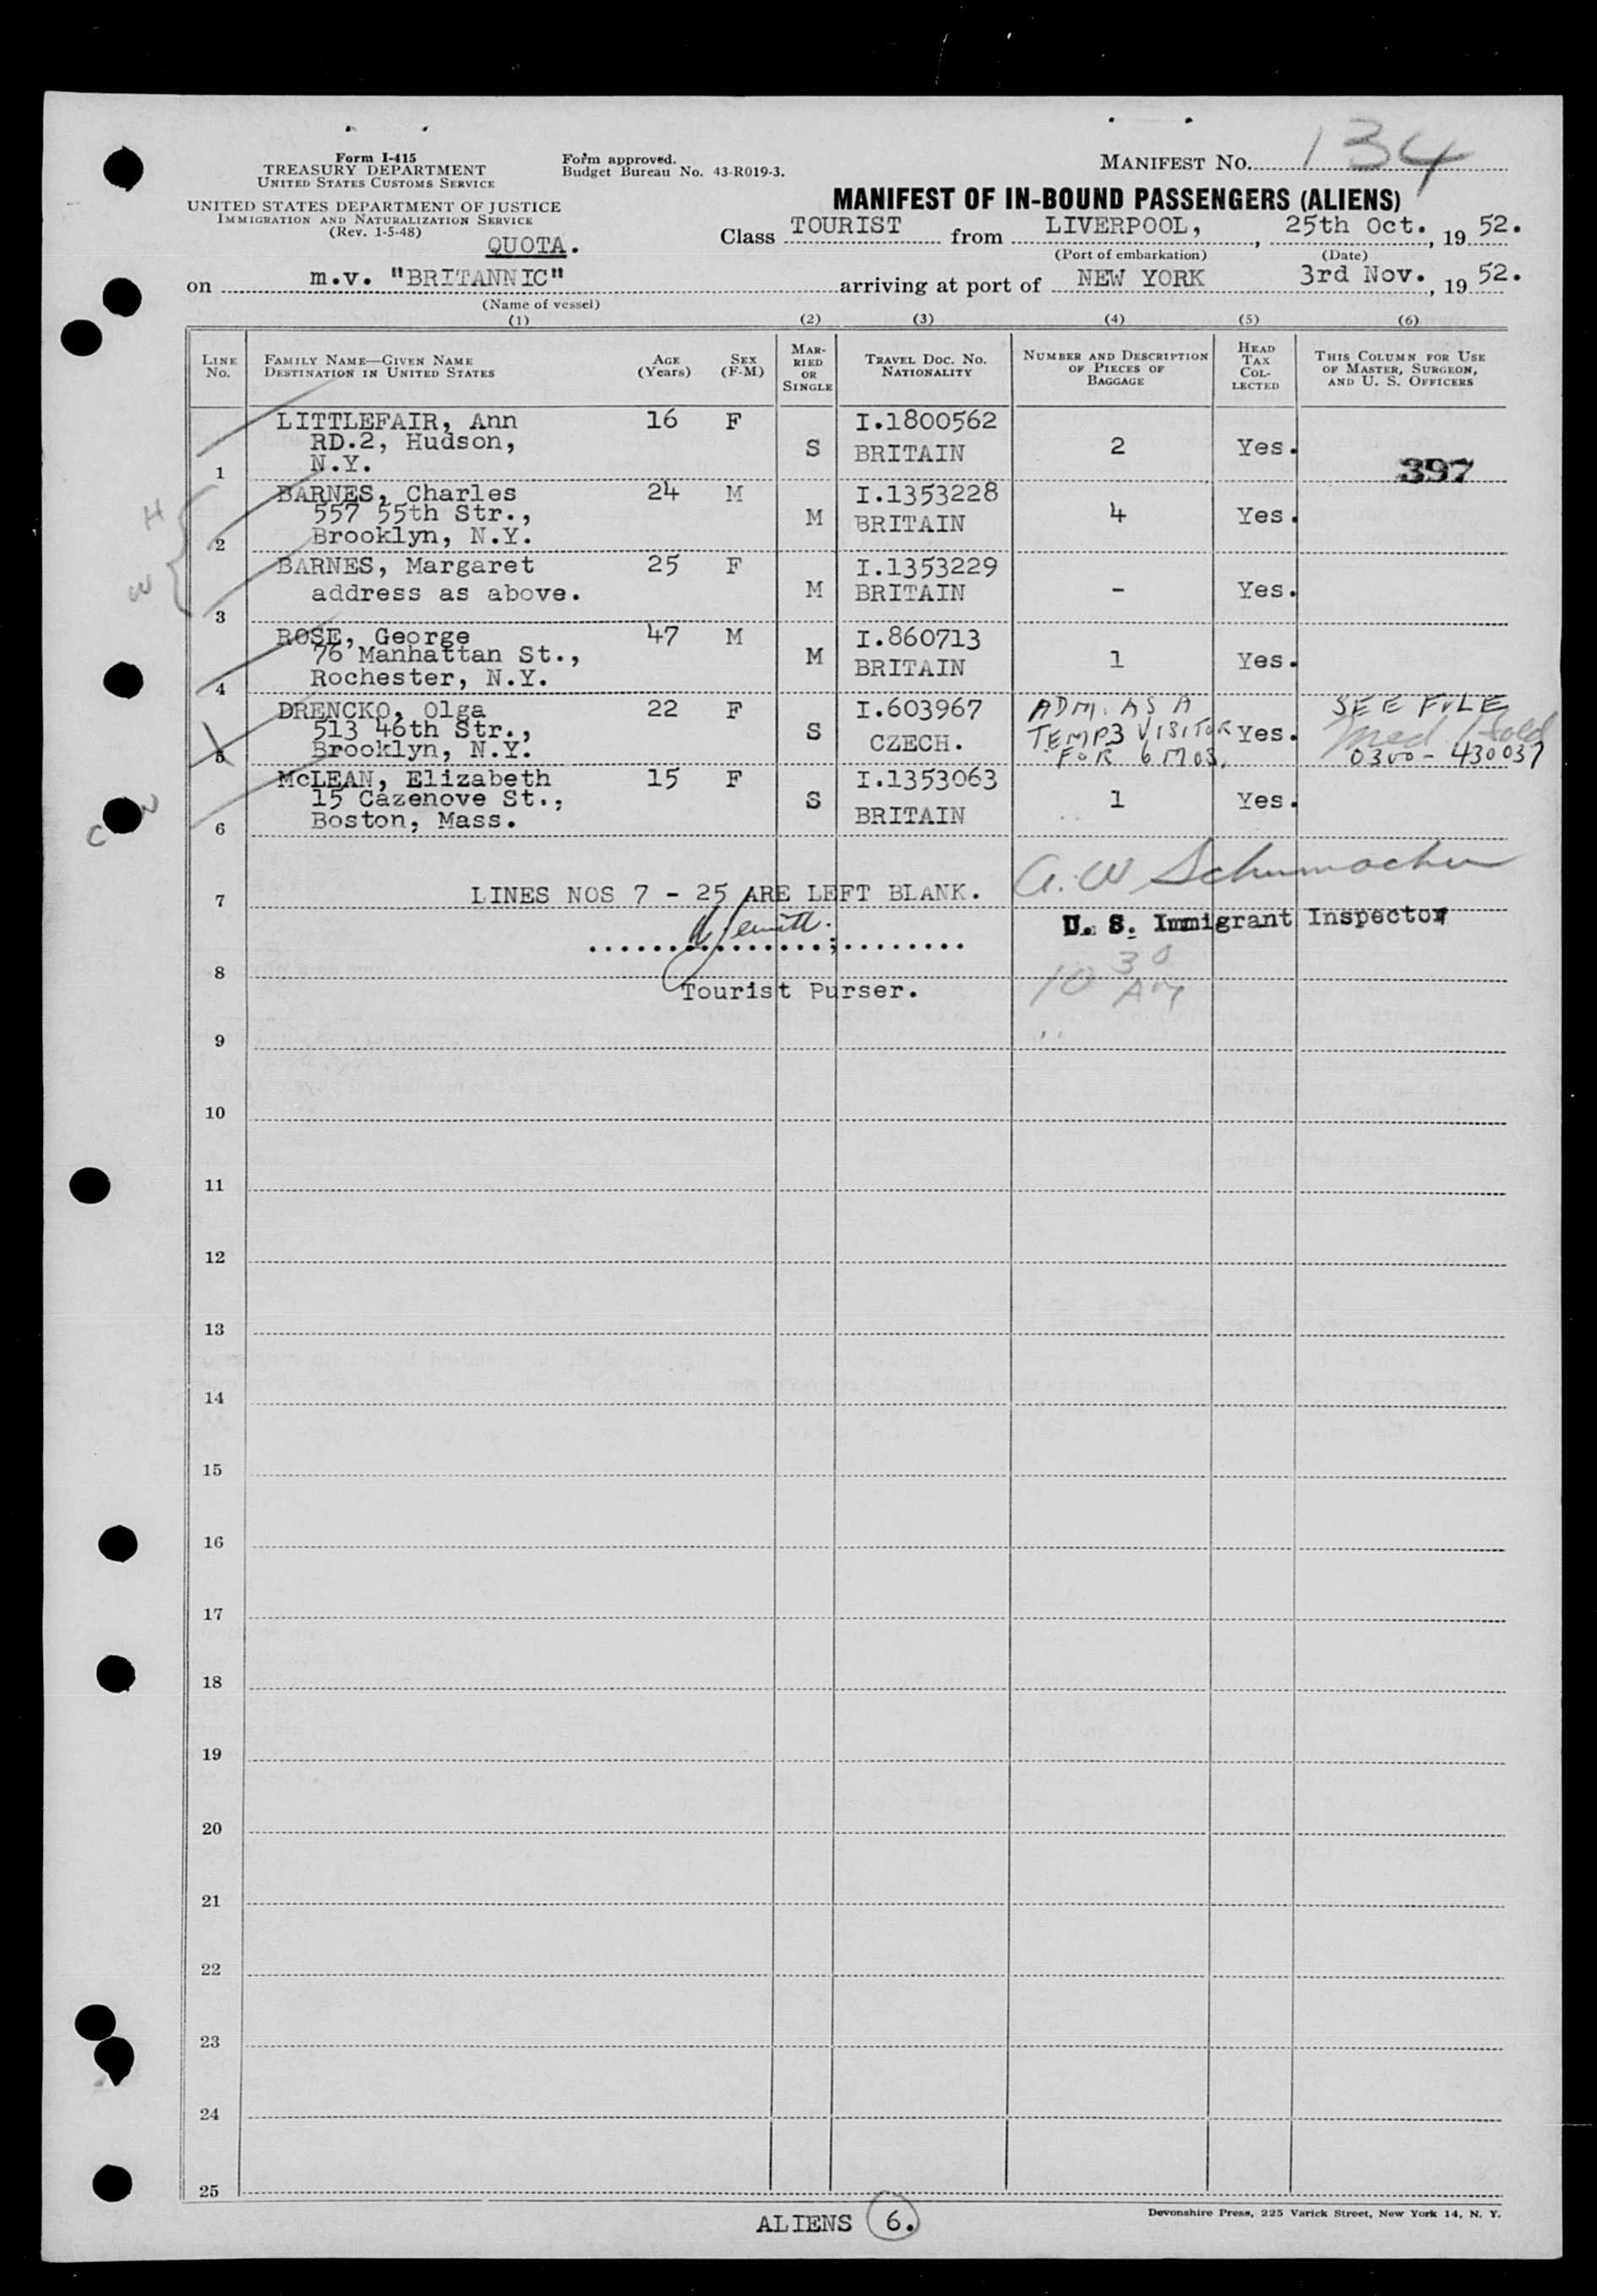 Form I-415
TREASURY DEPARTMENT
UNITED STATES CUSTOMS SERVICE
Form approved.
Budget Bureau No. 43-R019-3.
MANIFEST NO. 134
UNITED STATES DEPARTMENT OF JUSTICE
IMMIGRATION AND NATURALIZATION SERVICE
(Rev. 1-5-48)
QUOTA.
MANIFEST OF IN-BOUND PASSENGERS (ALIENS)
Class TOURIST from LIVERPOOL, , 25th Oct. , 19 52.
(Port of embarkation) (Date)
on m.v. "BRITANNIC" arriving at port of NEW YORK 3rd Nov. , 19 52.
(Name of vessel)
(1) (2) (3) (4) (5) (6)
LINE NO. FAMILY NAME—GIVEN NAME DESTINATION IN UNITED STATES AGE (Years) SEX (F-M) MARRIED OR SINGLE TRAVEL DOC. NO. NATIONALITY NUMBER AND DESCRIPTION OF PIECES OF BAGGAGE HEAD TAX COLLECTED THIS COLUMN FOR USE OF MASTER, SURGEON, AND U. S. OFFICERS
LITTLEFAIR, Ann 16 F I.1800562
RD.2, Hudson, S BRITAIN 2 Yes.
1 N.Y. 397
BARNES, Charles 24 M I.1353228
H 557 55th Str., M BRITAIN 4 Yes.
2 Brooklyn, N.Y.
BARNES, Margaret 25 F I.1353229
W address as above. M BRITAIN - Yes.
3
ROSE, George 47 M I.860713
76 Manhattan St., M BRITAIN 1 Yes.
4 Rochester, N.Y.
DRENCKO, Olga 22 F I.603967 ADM. AS A SEE FILE
513 46th Str., S CZECH. TEMP3 VISITOR Yes. Med. Hold
5 Brooklyn, N.Y. FOR 6 MOS. 0300-430037
McLEAN, Elizabeth 15 F I.1353063
15 Cazenove St., S BRITAIN 1 Yes.
6 Boston, Mass.
A. W Schumacher
7 LINES NOS 7 - 25 ARE LEFT BLANK.
U. S. Immigrant Inspector
8
Tourist Purser. 10 30 AM
9
10
11
12
13
14
15
16
17
18
19
20
21
22
23
24
25
ALIENS 6.
Devonshire Press, 225 Varick Street, New York 14, N. Y.